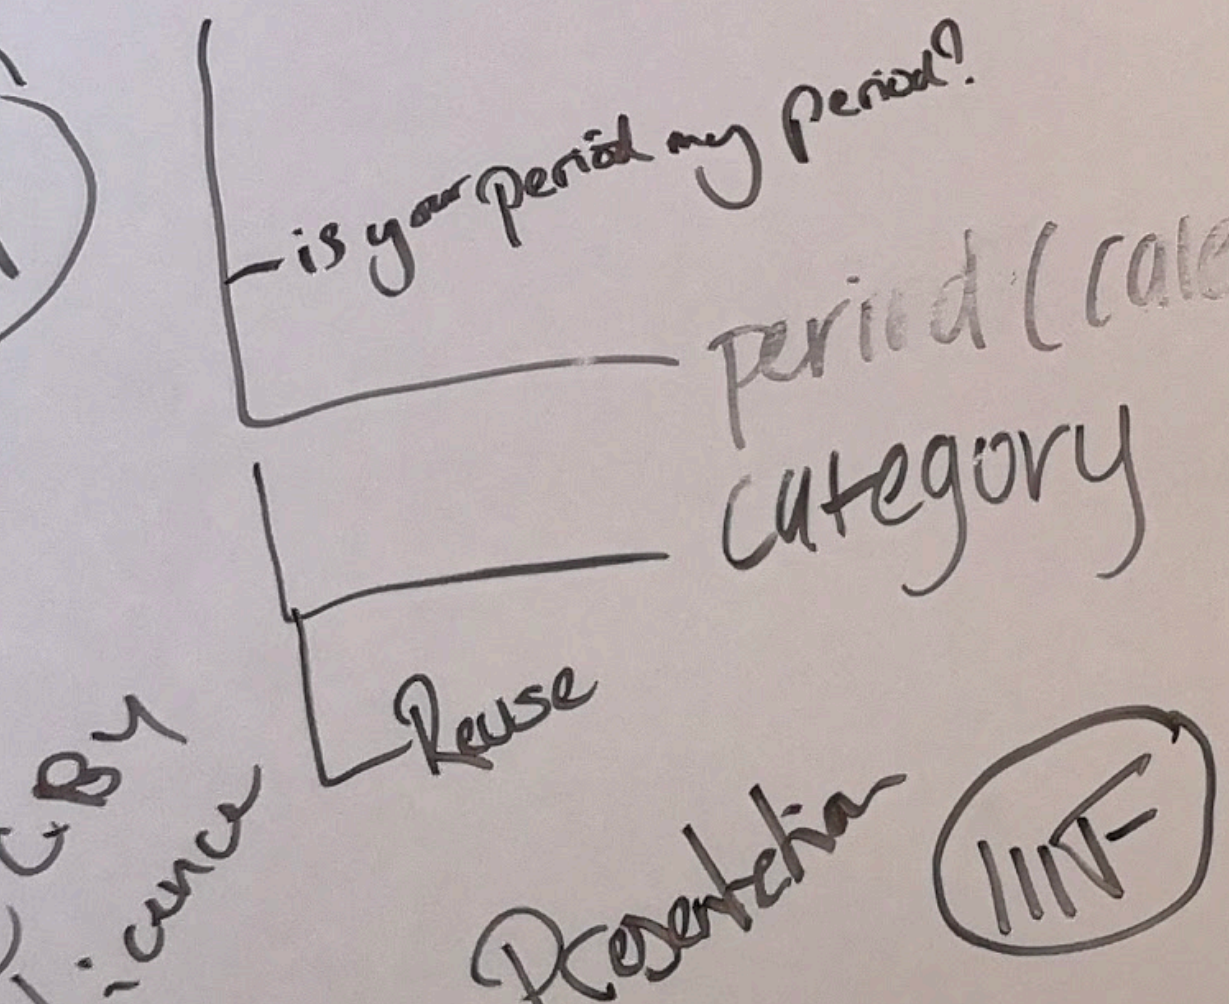 is your period my period?
period (
category
Reuse
BY
licence
Presentation